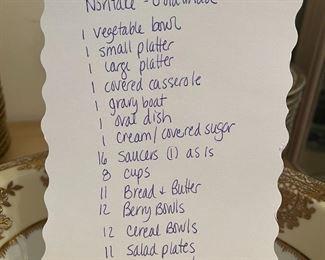 Noritake -
1 vegetable bowl
1 small platter
1 large platter
1 covered casserole
1 gravy boat
1 oval dish
1 cream/covered sugar
16 saucers (1) as is
8 cups
11 Bread + Butter
12 Berry Bowls
12 Cereal Bowls
11 Salad plates